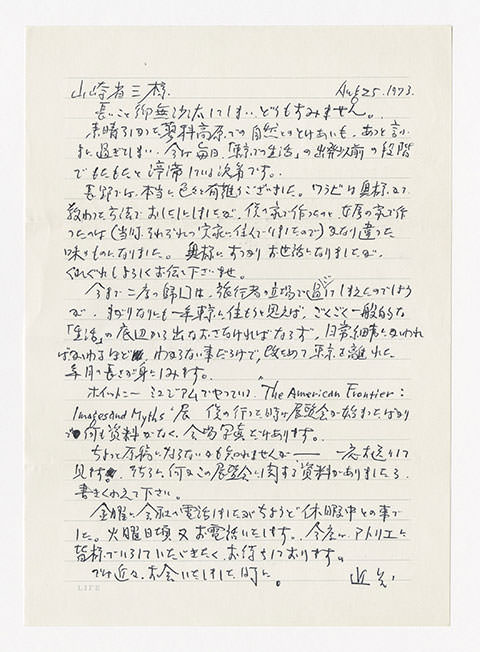 山崎省三様 Aug 25. 1973.
長いこと御無沙汰してしまい、どうもすみません。
素晴らしかった蓼科高原での自然とのとけあいも、あっと言う
まに過ぎてしまい、今は毎日、「東京での生活」の出発以前の段階
でもたもたと 滞っている次第です。
長野では、本当に色々有難うございました。ワラビは奥様に
教わった方法でおしたしにしましたが、僕の家で作ったのと、女房の家で作
ったのは(当分、それぞれの実家に住んでいましたので)かなり違った
味のものになりました。 奥様にすっかりお世話になりましたが、
くれぐれもよろしくお伝え下さいませ。
今まで二度の帰国は、旅行者の立場で過してしまえたのでしょう
が、まがりなりにも一年東京に住もうと思えば、ごくごく一般的な
「生活」の底辺から出なおさなければならず、日常細事に追われ
ればおわれるほど、わからない事だらけで、改めて東京を離れた
年月の長さが身にしみます。
ホイットニー ミュジアムでやっている、"The American Frontier:
Images and Myths" 展 僕の行った時は展覧会が始まったばかり
で何も資料がなく、会場写真だけあります。
ちょっと原稿にならないかも知れませんが── 一応お送りして
見ます。そちらに何かこの展覧会に関する資料がありましたら
書きくわえて下さい。
金曜に会社に電話しましたがちょうど休暇中との事で
した。火曜日頃 又 お電話いたします。 今度は、アトリエに
皆様でいらしていただきたく、お待ちしております。
では近々、お会いいたしました時に。
LIFE